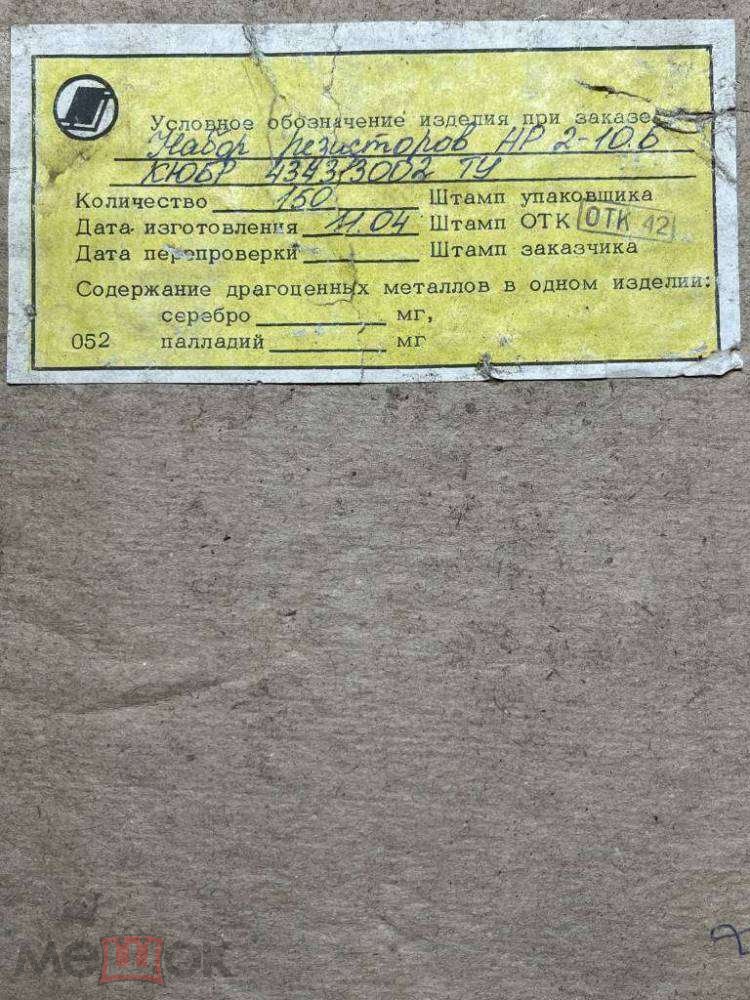 Условное обозначение изделия при заказе
Набор резисторов НР 2-10.6
КЮБР 434313002 ТУ
Количество 150 Штамп упаковщика
Дата изготовления 11.04 Штамп ОТК ОТК 42
Дата перепроверки Штамп заказчика
Содержание драгоценных металлов в одном изделии:
серебро мг,
052 палладий мг
мешок